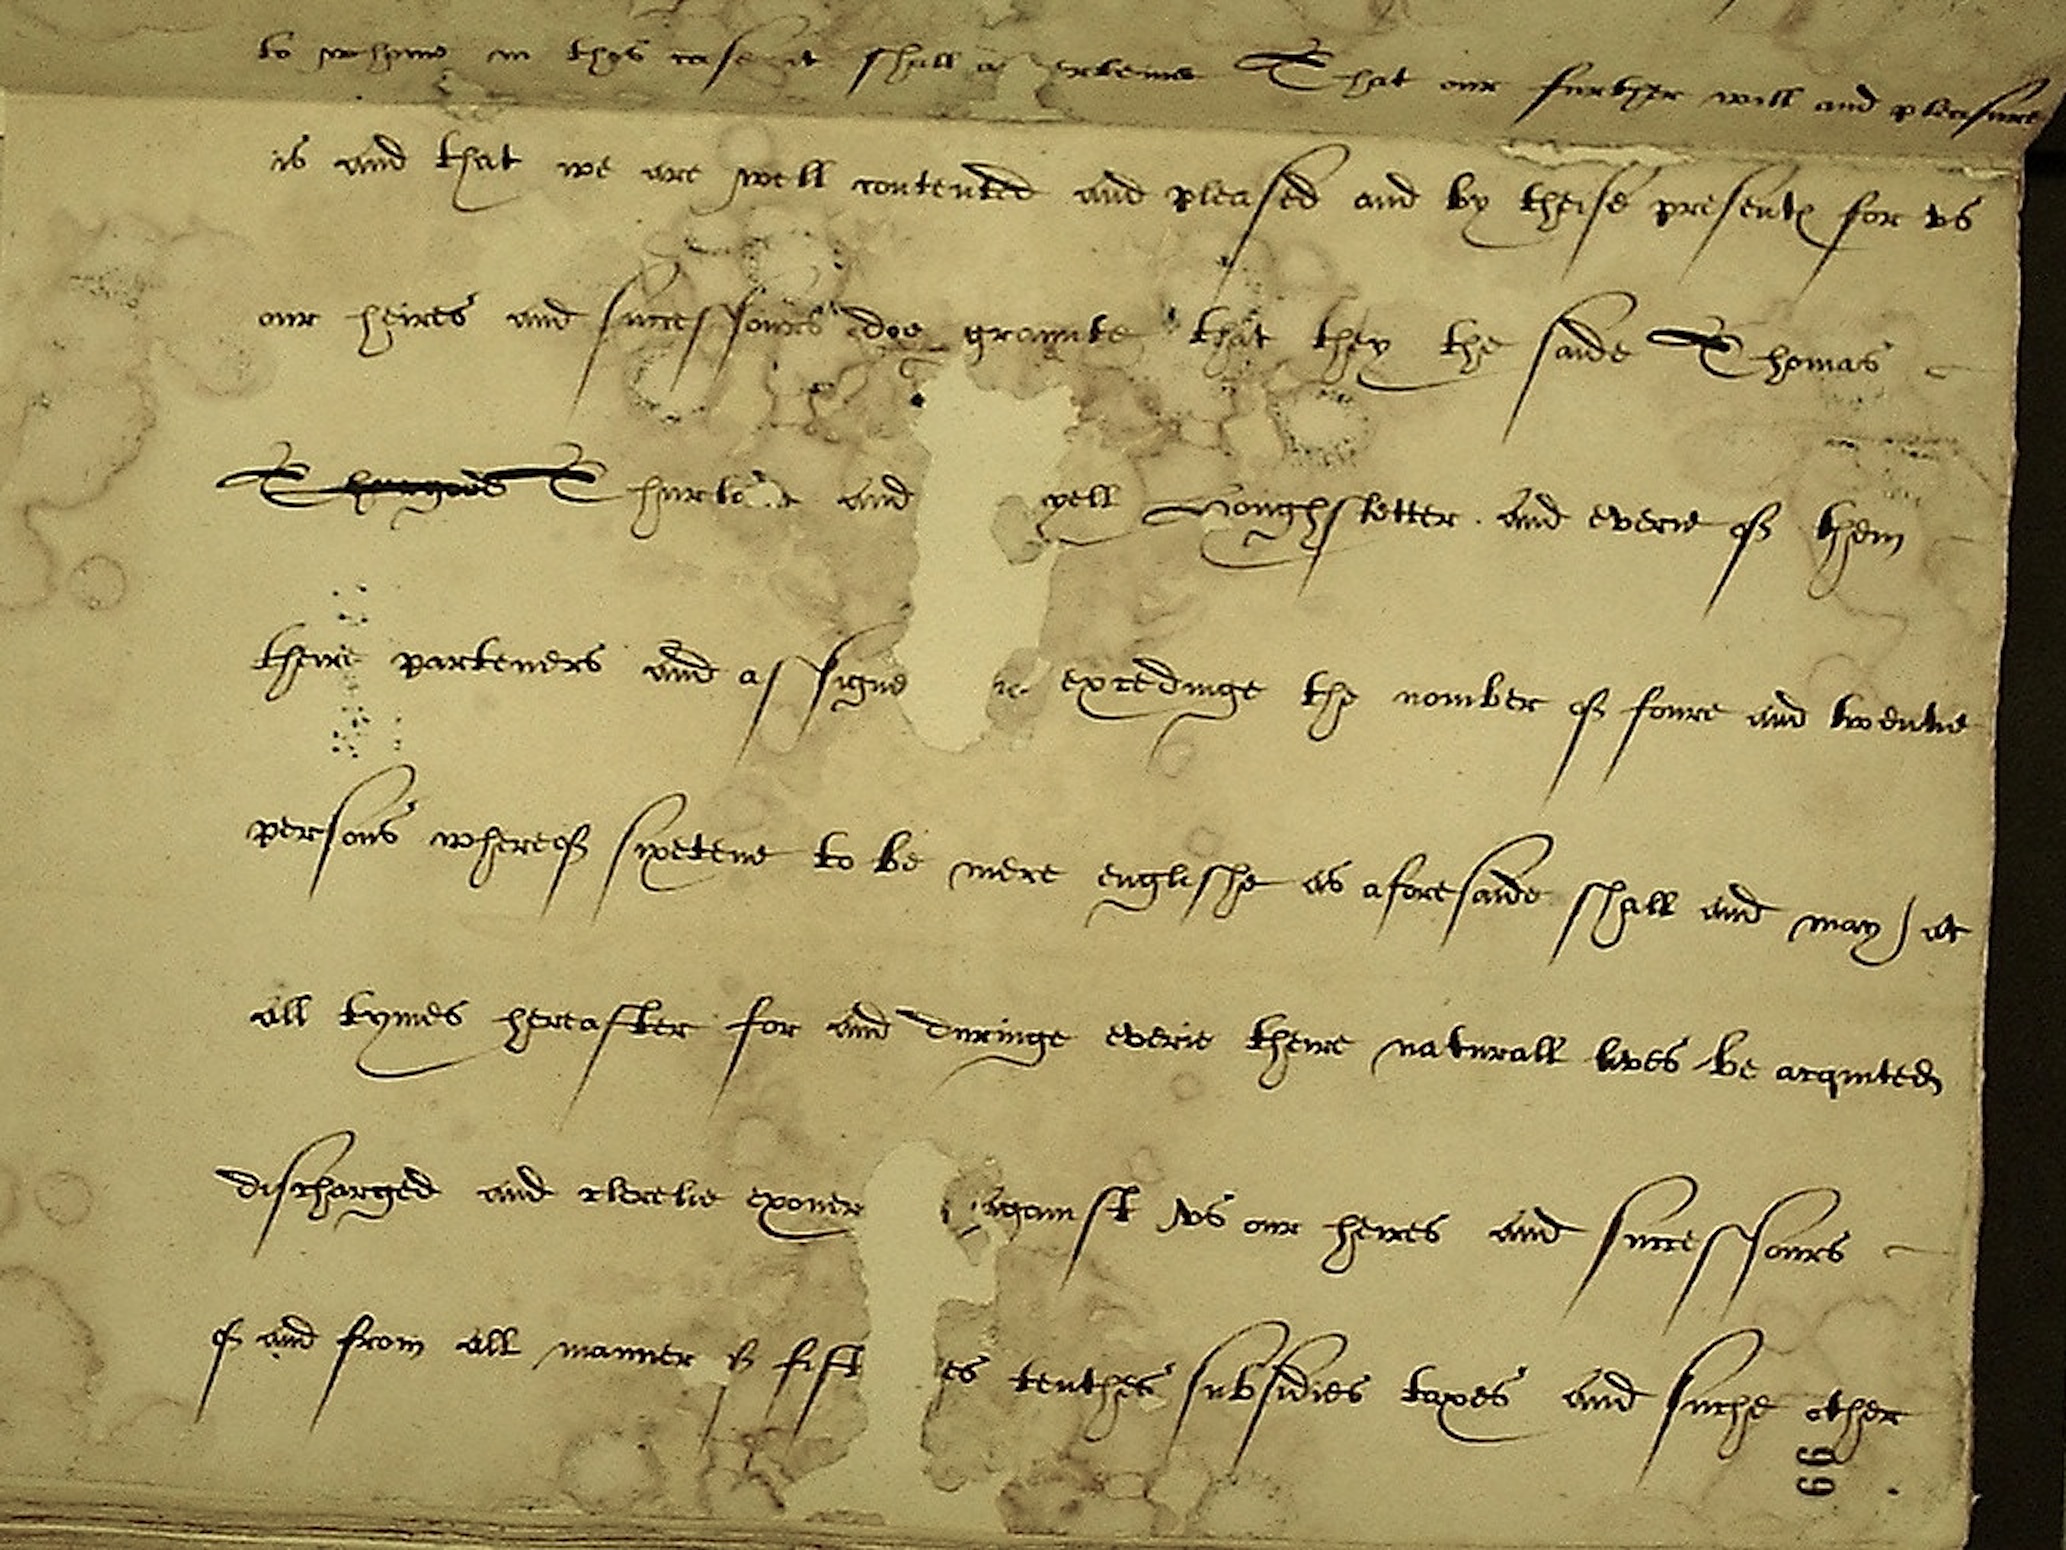 to whome in thys case it shall a erteine That our further will and pleasure
is and that we are well contented and pleased and by theise presentes for vs
our heires and successours doe graunte that they the saide Thomas
and yell Houghstetter and everie of them
theire parteners and assigne excedinge the nomber of foure and twentie
persons whereof sixetene to be mere englishe as aforesaide shall and may / at
all tymes hereafter for and duringe everie theire naturall lives be acquited
discharged and clerelie exoner against vs our heires and successours
of and from all manner of fift es tenthes subsidies taxes and suche other
99